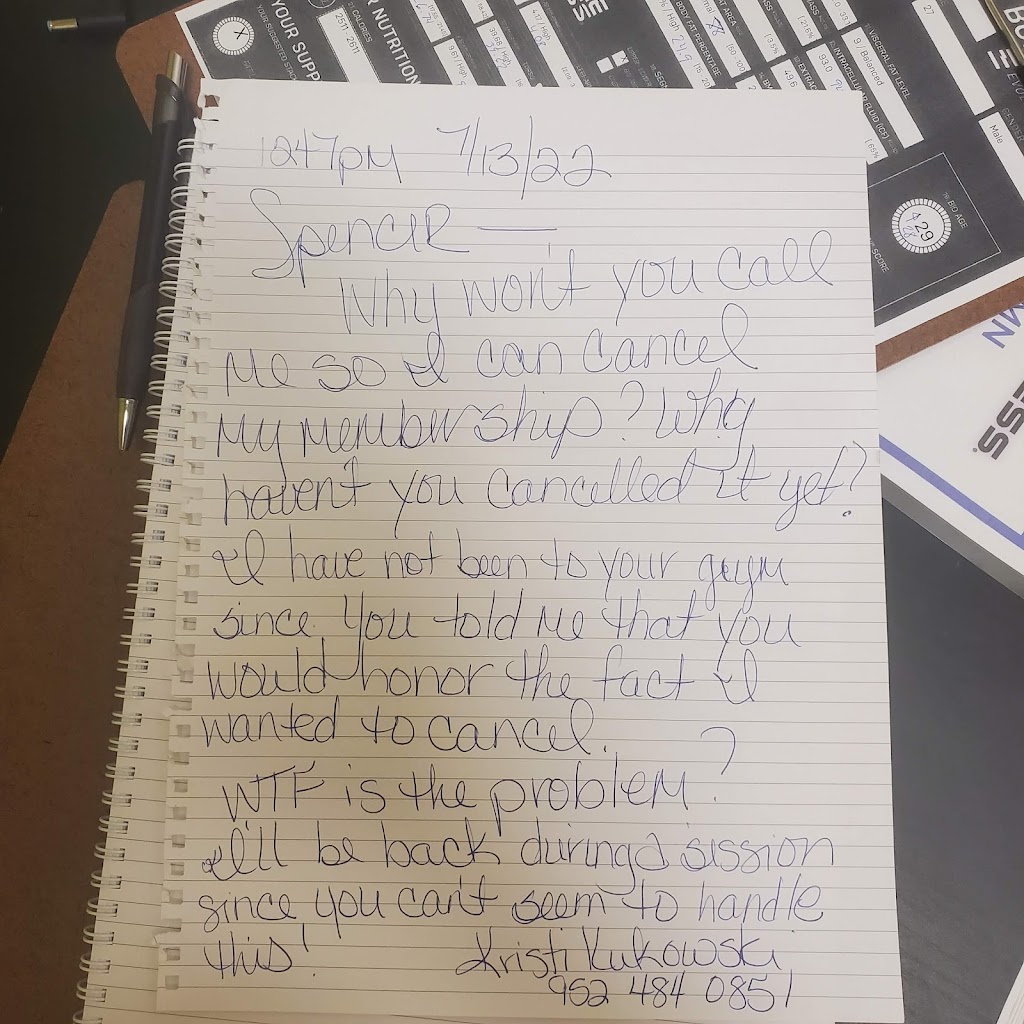 1247pm 7/13/22
Spencer —
Why won't you call
me so I can cancel
my membership? Why
haven't you cancelled it yet?
I have not been to your guym
since you told me that you
would honor the fact I
wanted to cancel.
WTF is the problem?
I'll be back during a session
since you can't seem to handle
this!
Kristi Kukowski
952 484 0851
YOUR SUPP
YOUR SUGGESTED STACK
R NUTRITION
CALORIES
2511 - 2611
BODY FAT PERCENTAGE
VISCERAL FAT LEVEL
9 / Balanced
INTRACELLULAR FLUID (ICF)
93.0
49.6
27
Male
BIO AGE
29
SCORE
ESS
MN